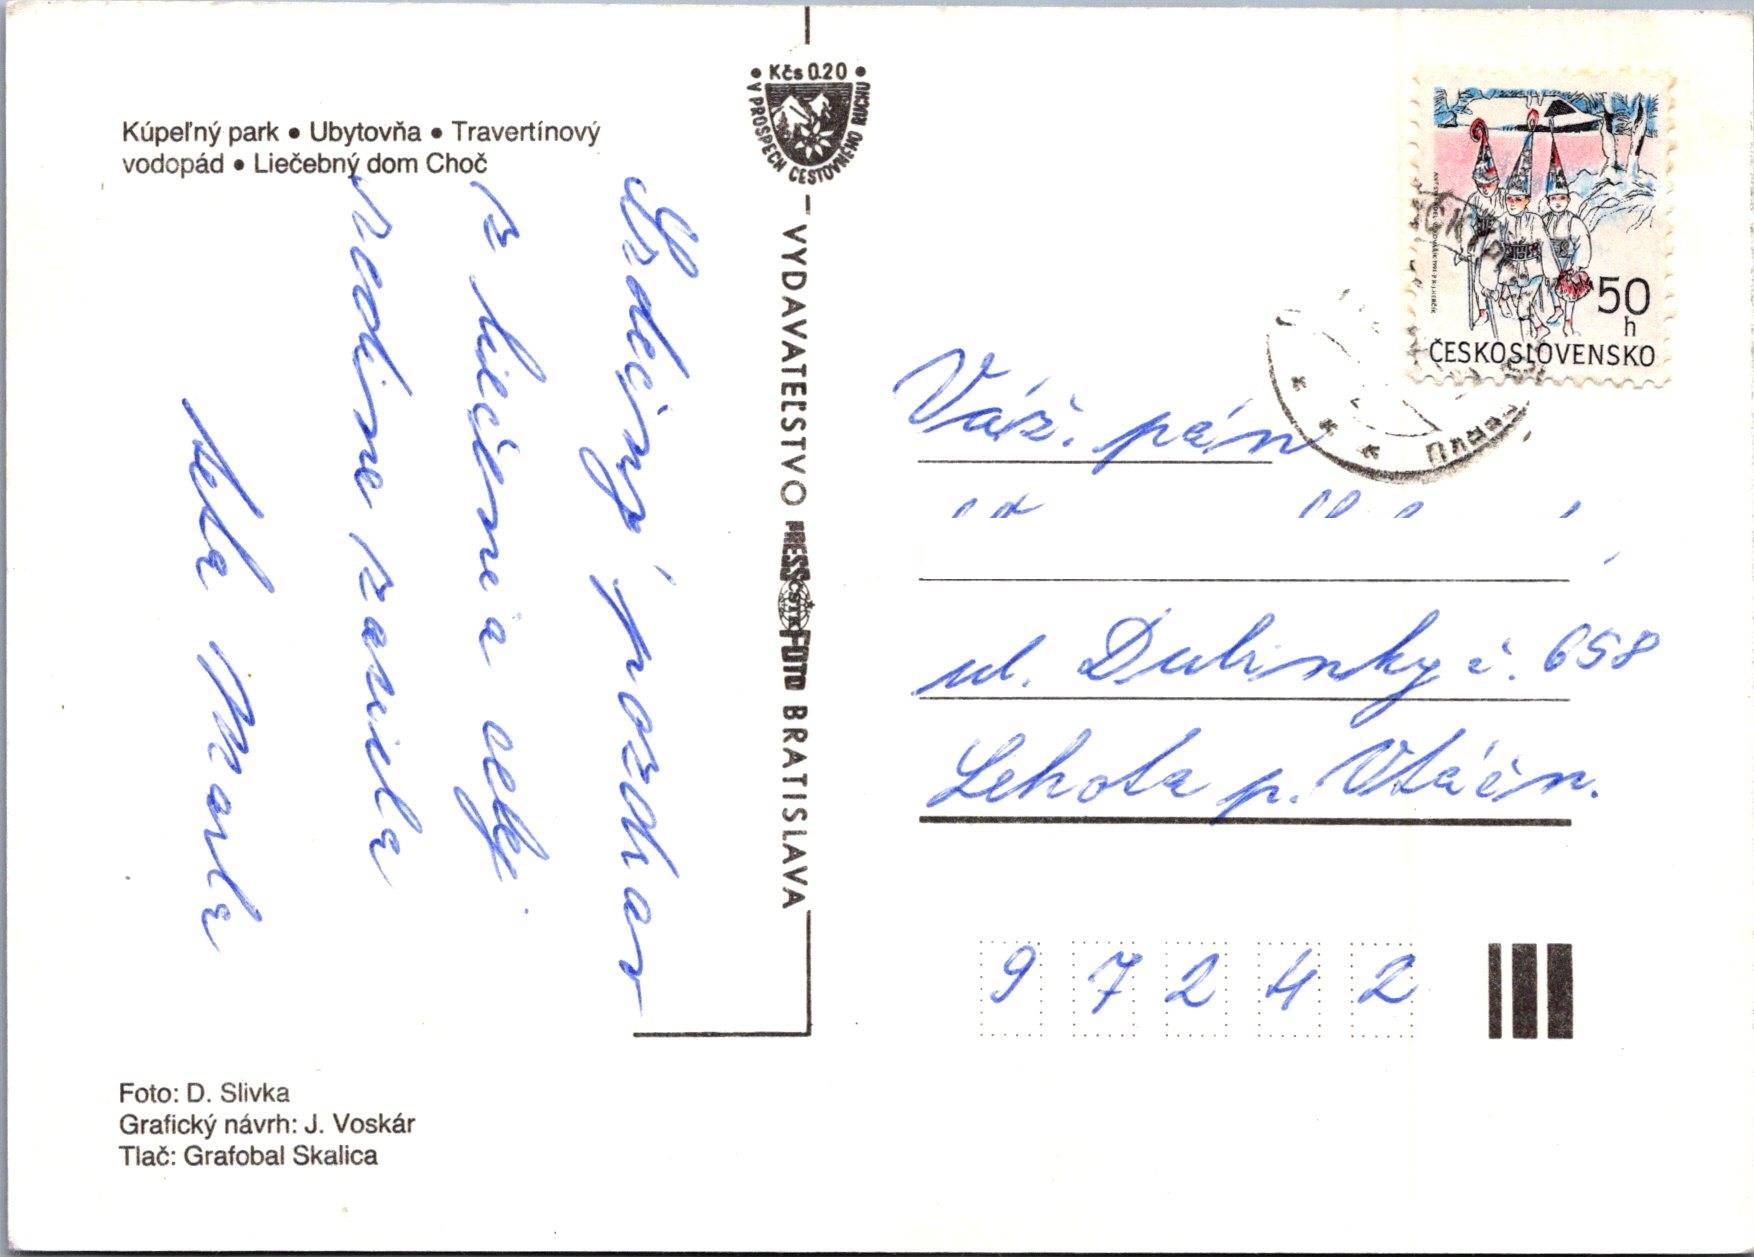 Kúpeľný park • Ubytovňa • Travertínový
vodopád • Liečebný dom Choč
Srdečný pozdrav
z liečenia celej
rodine zasiela
teta Marta
• Kčs 0.20 •
V PROSPECH CESTOVNÉHO RUCHU
VYDAVATEĽSTVO PRESSFOTO BRATISLAVA
ČSTK
50
h
ČESKOSLOVENSKO
Váž. pán
ul. Dubinky č. 658
Lehota p. Vtáčn.
97242
Foto: D. Slivka
Grafický návrh: J. Voskár
Tlač: Grafobal Skalica